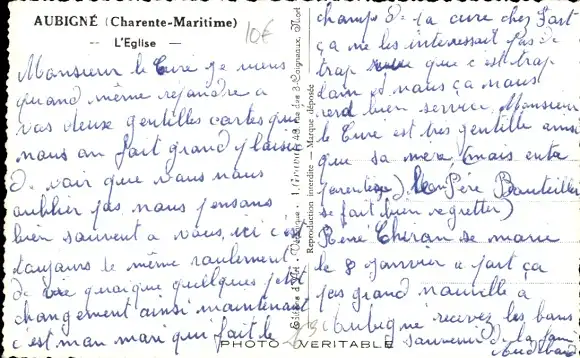 AUBIGNÉ (Charente-Maritime)
— L'Eglise —
10€
Monsieur le Curé je viens
quand même repondre a
vos deux gentilles cartes qui
nous on fait grand plaisir
De voir que vous nous
oublier pas nous pensons
bien souvent a vous, ici c'est
toujours le même roulement
De quoique quelques petit
changement ainsi maintenant
c'est mon mari qui fait le
champs de la cure chez Fait
ça ne les interessait pas de
trop que c'est trop
loin et nous ça nous
rend bien service. Monsieur
le Curé est très gentille ainsi
que sa mere, (mais entre
parentèse) le Père Bouteiller
se fait bien regretter)
René Cheran se marie
le 8 janvier a part ça
pas grand nouvelle à
Aubigné recevez les bons
souvenir de la fam
Reproduction interdite — Marque déposée
PHOTO VERITABLE